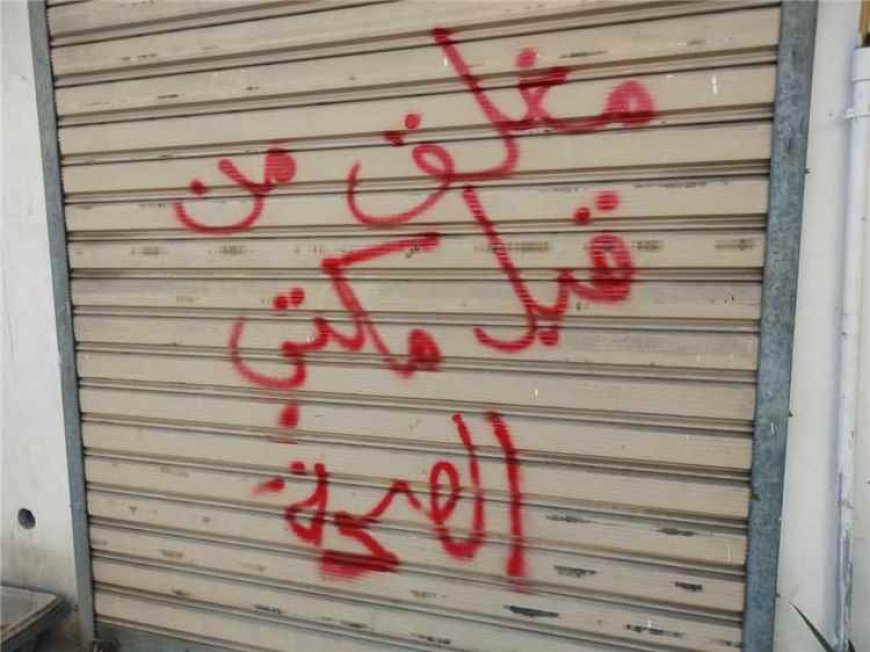 مغلق من
قبل مكتب
الصحة